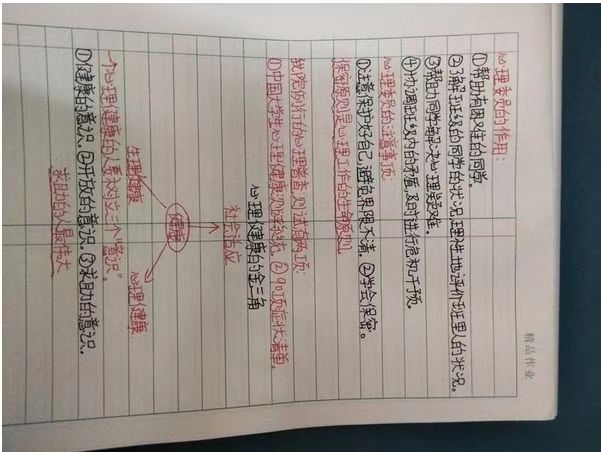 精品作业
心理委员的作用：
①帮助有困难的同学。
②了解班级的同学的状况,理性地评价班里人的状况。
③帮助同学解决心理疑难。
④协调班级内的矛盾,及时进行危机干预。
心理委员的注意事项:
①注意保护好自己,避免界限不清。②学会保密。
保密原则是心理工作的生命原则。
我院例行的心理普查,测试有两项:
①中国大学生心理健康测试系统。②90项症状清单。
心理健康的金三角
社会适应
健康
生理健康 心理健康
一个心理健康的人要树立三个"意识"。
①健康的意识。②开放的意识。③求助的意识。
求助的人最伟大